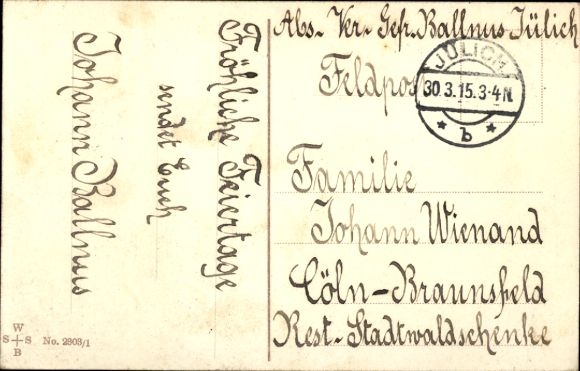 Fröhliche Feiertage
sendet Euch
Johann Ballnus
Abs. Ver. Gefr. Ballnus Jülich
Feldpos
JÜLICH
30 3.15.3-4N
* b *
Familie
Johann Wienand
Cöln-Braunsfeld
Rest. Stadtwaldschenke
W
S+S
B
No. 2803/1